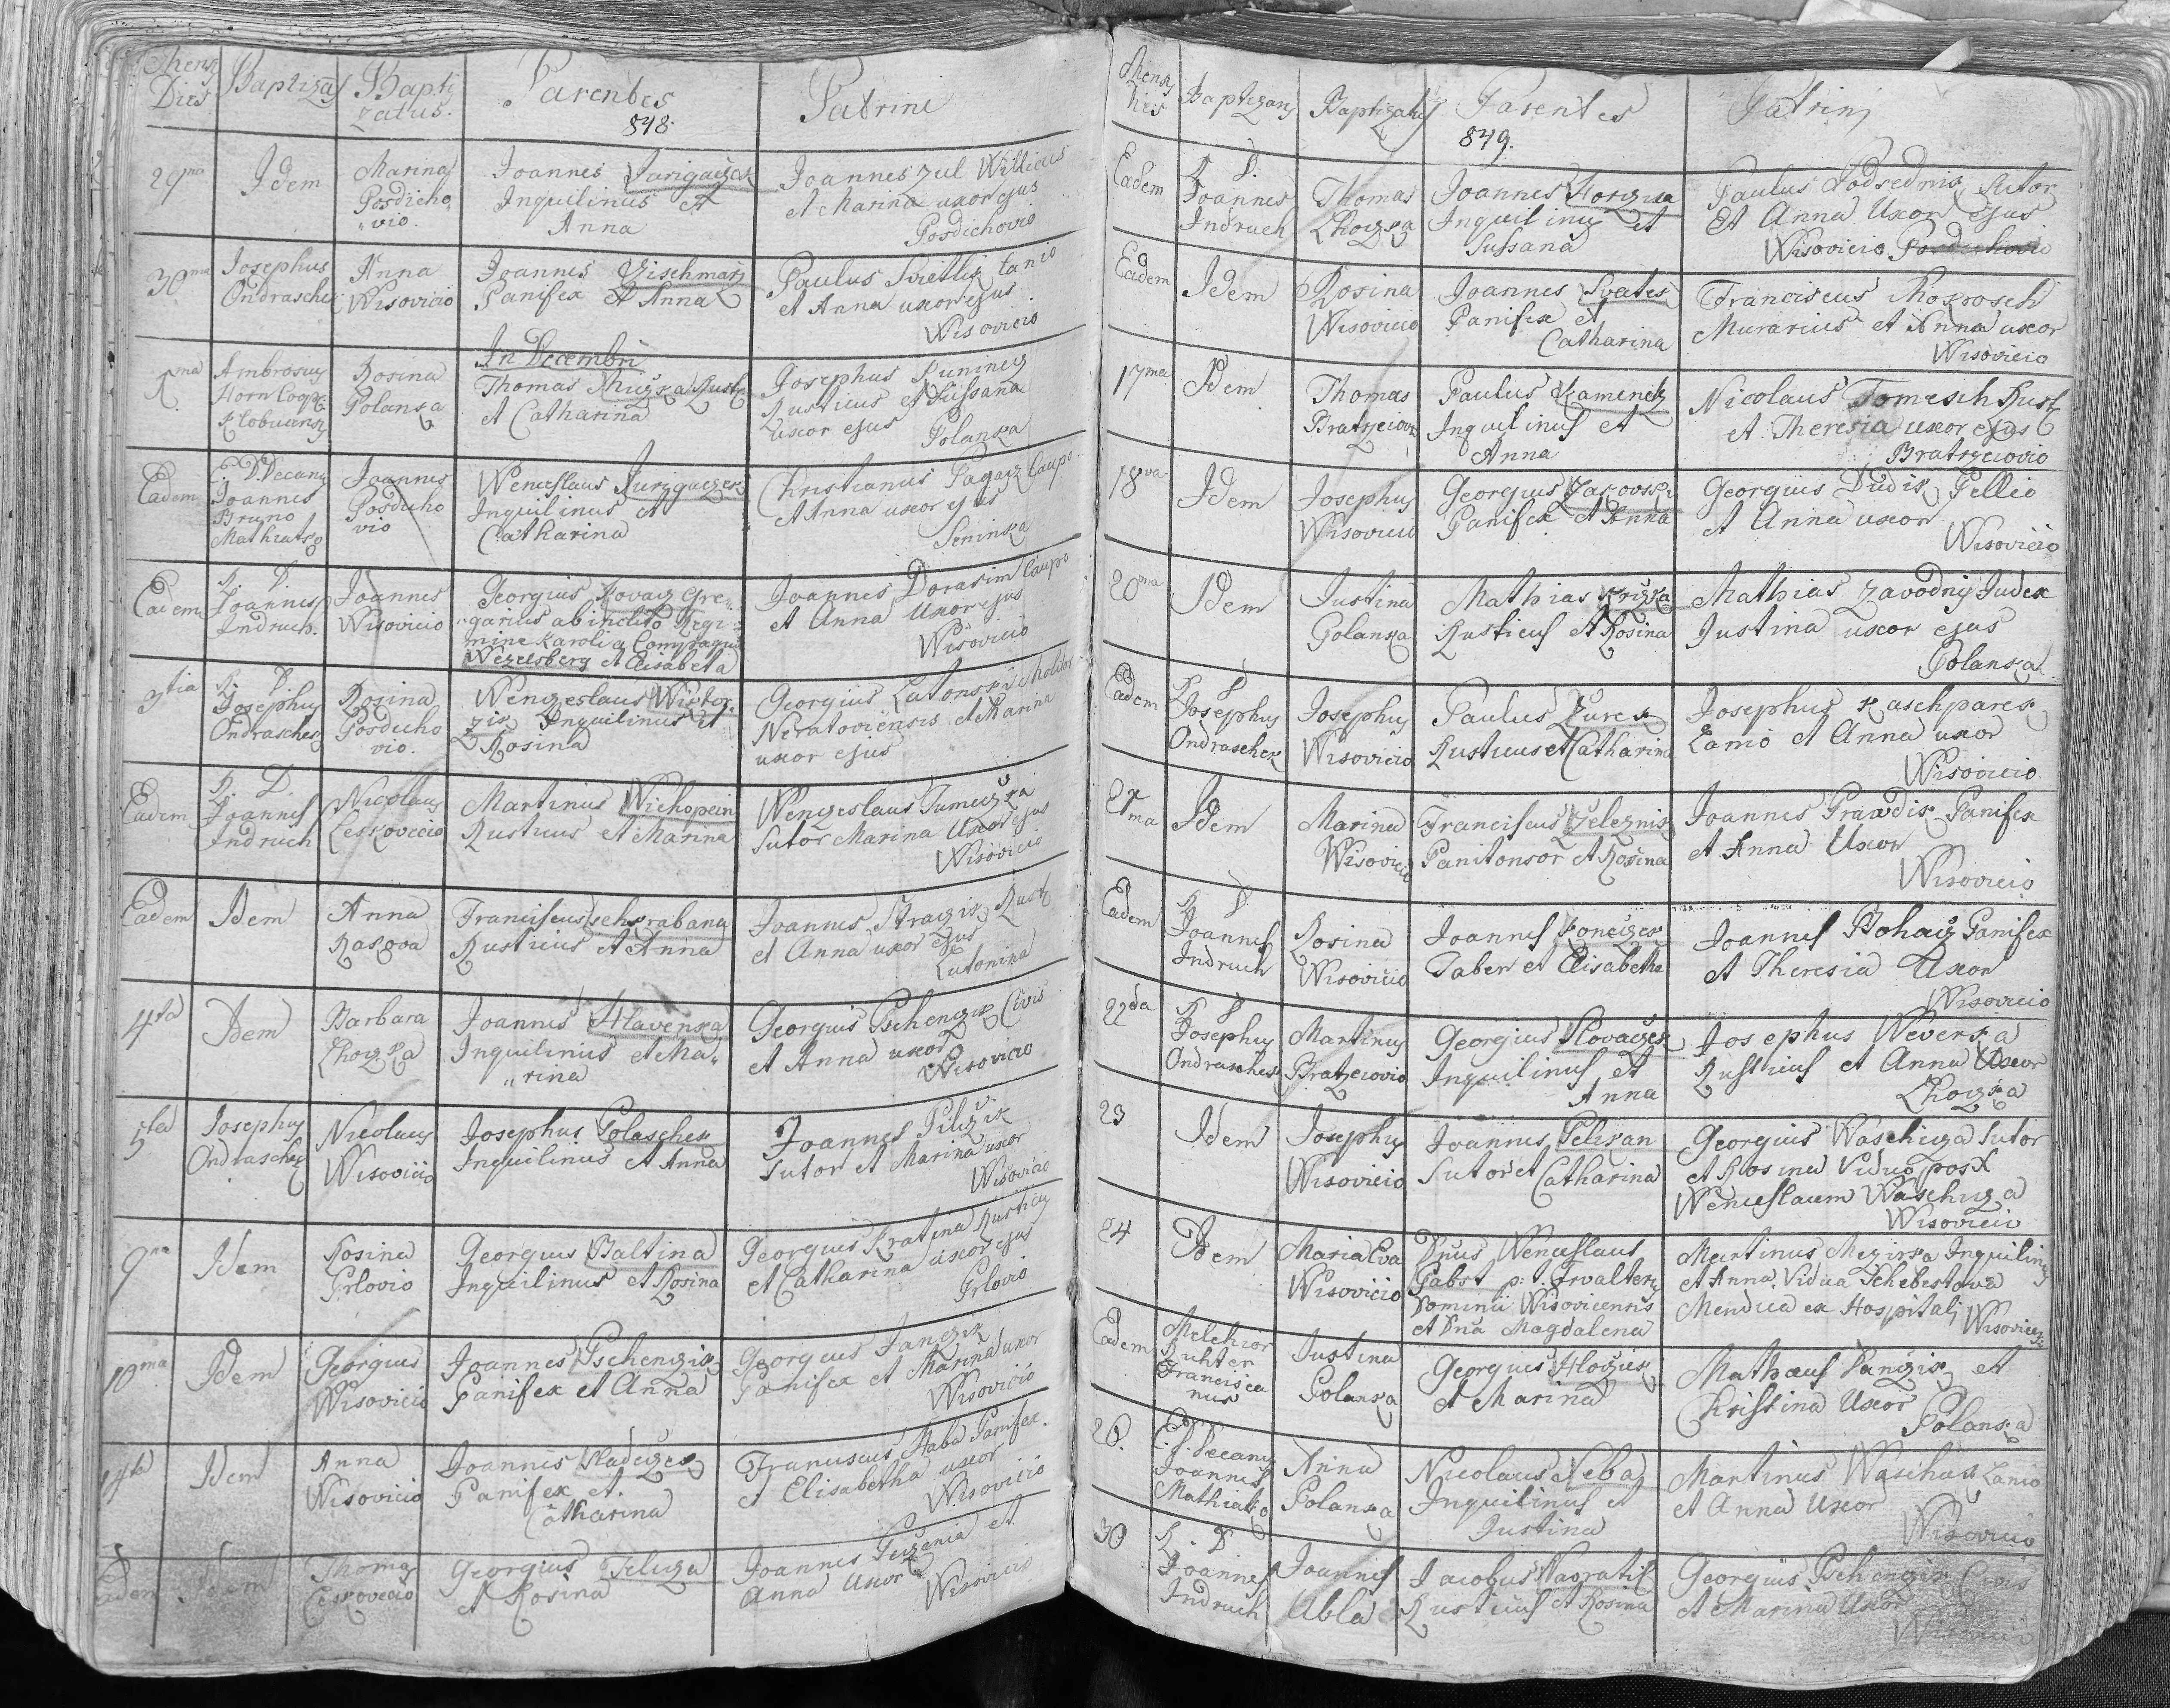 Mens Dies
Baptizãs
Bapti
zatus.
Parentes
848.
Patrini
29na
Idem
Marina
Posdicho
vio.
Joannes Jurigaczek
Inquilinus et
Anna
Joannes zul Willicus
et Marina uxor ejus
Posdichovio
30ma
Josephus
Ondraschek
Anna
Wisovicio
Joannes Zischmarz
Panifex et Anna
Paulus Svietlig lanio
et Anna uxor ejus
Wisovicio
In Decembri
1ma
Ambrosius
Horn Coop.
Klobucensis
Rosina
Polanka
Thomas
et Catharina
Josephus
Rusticus et Sussana
uxor ejus
Polanka
Eadem
E. D. Decanus
Joannes
Bruno
Mathiatko
Joannes
Posdicho
vio
Wenceslaus Jurigaczek
Inquilinus et
Catharina
Christianus Pagacz Caupo
et Anna uxor ejus
Seninka
Eadem
R. D.
Joannes
Indruch.
Joannes
Wisovicio
Georgius Kovarz Gre
garius ab inclito Regi
mine Karoli a Compagnia
Wezelsberg et Elisabeta
Joannes Dorasim Caupo
et Anna Uxor ejus
Wisovicio
3tia
R. D.
Josephus
Ondraschek
Rosina
Posdicho
vio.
Wenzeslaus Wistor
zik Inquilinus et
Rosina
Georgius Lutonski Molitor
Neratoviensis et Marina
uxor ejus
Eadem
R. D.
Joannes
Indruch
Nicolaus
Leskovecio
Martinus Wichopein
Rusticus et Marina
Wenzeslaus Tumeczka
Sutor Marina Uxor ejus
Wisovicio
Eadem
Idem
Anna
Rakova
Franciscus Tschkrabana
Rusticus et Anna
Joannes Kraczik Rust.
et Anna uxor ejus
Lutonina
4ta
Idem
Barbara
Lhotzka
Joannes Hlavenka
Inquilinus et Ma
rina
Georgius Pschenczik Civis
et Anna uxor
Wisovicio
5ta
Josephus
Ondraschek
Nicolaus
Wisovicio
Josephus Polaschek
Inquilinus et Anna
Joannes Pilzik
Sutor et Marina uxor
Wisovicio
9na
Idem
Rosina
Prlovio
Georgius Baltina
Inquilinus et Rosina
Georgius Kratina Rusticus
et Catharina uxor ejus
Prlovio
10ma
Idem
Georgius
Wisovicio
Joannes Pschenczik
Panifex et Anna
Georgius Janczik
Panifex et Marina uxor
Wisovicio
Idem
Anna
Wisovicio
Joannes Sladeczek
Panifex et
Catharina
Franciscus Haba Panifex.
et Elisabetha uxor
Wisovicio
Eadem
Idem
Thomas
Leskovecio
Georgius Feliza
et Rosina
Joannes Peczenia et
Anna Uxor
Wisovicio
Mens
Dies
Baptizans
Baptizatus
Parentes
849.
Patrini
Eadem
R. D.
Joannes
Indruch
Thomas
Lhotzka
Joannes Horczika
Inquilinus et
Sussana
Paulus Podsednik Sutor
Et Anna Uxor ejus
Wisovicio Posdichovio
Eadem
Idem
Rosina
Wisovicio
Joannes Svatek
Panifex et
Catharina
Franciscus Mokrosch
Murarius et Anna uxor
Wisovicio
17ma
Idem
Thomas
Bratrzeiov
Paulus Kamenetz
Inquilinus et
Anna
Nicolaus Tomesch Rust.
et Theresia uxor ejus
Bratrzeiovio
18va
Idem
Josephus
Wisovicio
Georgius Zakovski
Panifex et Anna
Georgius Dudik Pellio
et Anna uxor
Wisovicio
20ma
Idem
Justina
Polanka
Mathias Krizka
Rusticus et Rosina
Mathias Zavodny Judex
Justina uxor ejus
Polanka
Eadem
R. D.
Josephus
Ondraschek
Josephus
Wisovicio
Paulus Zurek
Rusticus et Catharina
Josephus Kaschparek
Lanio et Anna uxor
Wisovicio
21ma
Idem
Marina
Wisovicio
Franciscus Zeleznik
Panitonsor et Rosina
Joannes Prawdik Panifex
et Anna Uxor
Wisovicio
Eadem
R. D.
Joannes
Indruch
Rosina
Wisovicio
Joannes Koneczek
Faber et Elisabetha
Joannes Bohacz Panifex
et Theresia Uxor
Wisovicio
22da
R. D.
Josephus
Ondraschek
Martinus
Bratrzeiovio
Georgius Slovaczek
Inquilinus et
Anna
Josephus Weverka
Rusticus et Anna Uxor
Lhotzka
23
Idem
Josephus
Wisovicio
Joannes Pelikan
Sutor et Catharina
Georgius Waschiza Sutor
et Rosina Vidua post
Wenceslaum Waschiza
Wisovicio
24
Idem
Maria Eva
Wisovicio
Dnus Wenceslaus
Pabst p: t. Frvalter
Dominii Wisovicensis
et Dna Magdalena
Martinus Mezirka Inquilinus
et Anna Vidua Schebestova
Mendica ex Hospitali Wisovicen:
Eadem
Melchior
Richter
Francisca
nus
Justina
Polanka
Georgius Hlozek
et Marina
Mathæus Vanczik et
Christina Uxor
Polanka
26.
E. D. Decanus
Joannes
Mathiatko
Anna
Polanka
Nicolaus Seba
Inquilinus et
Justina
Martinus Waschak Lanio
et Anna Uxor
Wisovicio
30
R. D.
Joannes
Indruch
Joannes
Ubla
Jacobus Navratil
Rusticus et Rosina
Georgius Pschenczik Civis
et Marina Uxor
Wisovicio